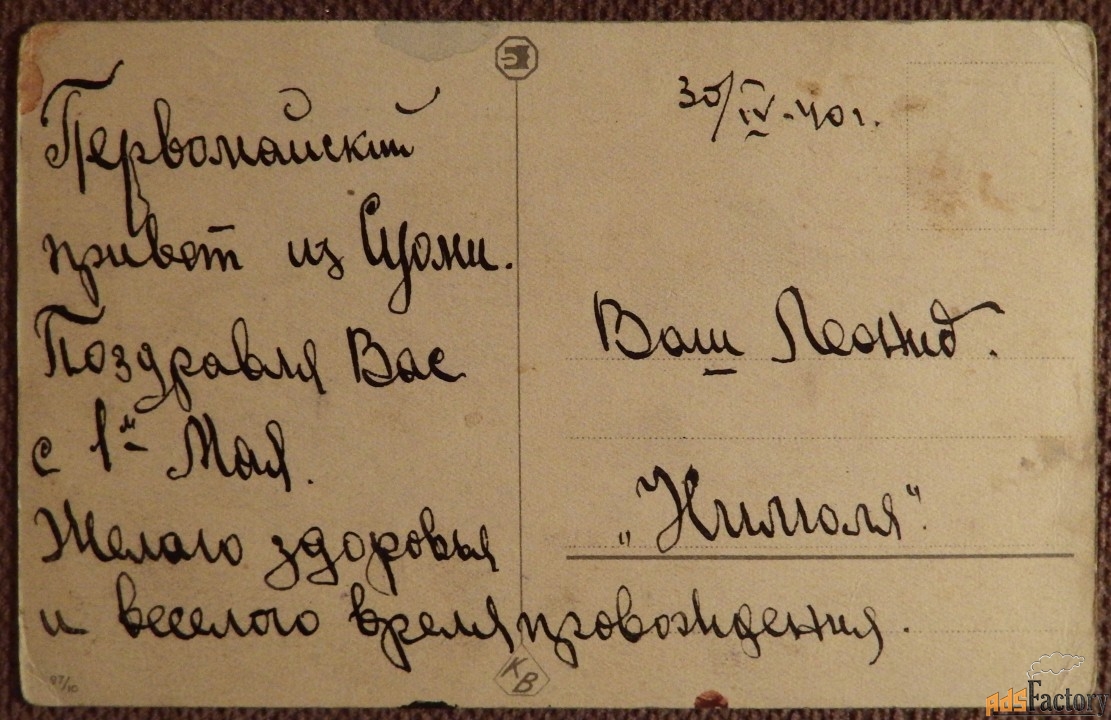 Первомайский
привет из Суоми.
Поздравля Вас
с 1м Мая.
Желаю здоровья
и веселого времяпровождения.
30/IV-40 г.
Ваш Леонид.
КВ
97/10
AdsFactory